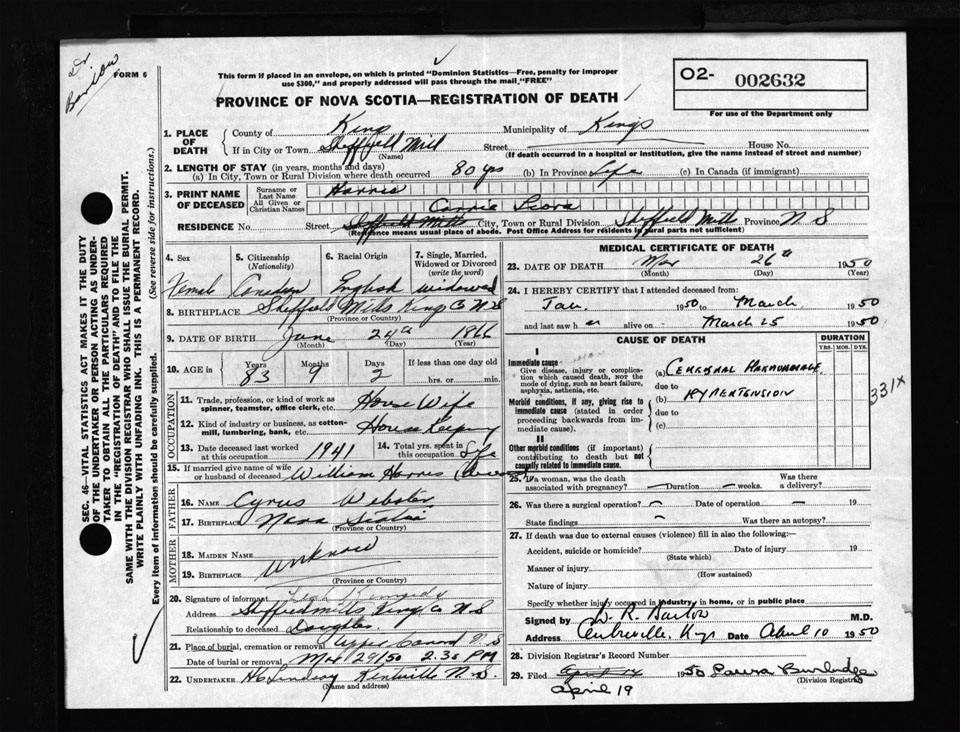 Dr
Barlow
FORM 6
This form if placed in an envelope, on which is printed "Dominion Statistics—Free, penalty for improper
use $300," and properly addressed will pass through the mail, "FREE"
PROVINCE OF NOVA SCOTIA—REGISTRATION OF DEATH
O2- 002632
For use of the Department only
1. PLACE OF DEATH
County of Kings Municipality of Kings
If in City or Town Sheffield Mill Street House No.
(Name) (If death occurred in a hospital or institution, give the name instead of street and number)
2. LENGTH OF STAY (in years, months and days)
(a) In City, Town or Rural Division where death occurred 80 yrs (b) In Province Life (c) In Canada (if immigrant)
3. PRINT NAME OF DECEASED
Surname or Last Name Harris
All Given or Christian Names Carrie Leora
RESIDENCE No. Street Sheffield Mills City, Town or Rural Division Sheffield Mills Province N S
(Residence means usual place of abode. Post Office Address for residents in rural parts not sufficient)
4. Sex 5. Citizenship (Nationality) 6. Racial Origin 7. Single, Married, Widowed or Divorced (write the word)
Female Canadian English widowed
8. BIRTHPLACE Sheffield Mills Kings Co NS
(Province or Country)
9. DATE OF BIRTH June 24th 1866
(Month) (Day) (Year)
10. AGE in Years Months Days If less than one day old
83 9 2 hrs. or min.
OCCUPATION
11. Trade, profession, or kind of work as
spinner, teamster, office clerk, etc. House Wife
12. Kind of industry or business, as cotton-
mill, lumbering, bank, etc. House Keeping
13. Date deceased last worked at this occupation 1941 14. Total yrs. spent in this occupation Life
15. If married give name of wife
or husband of deceased William Harris
FATHER
16. NAME Cyrus Webster
17. BIRTHPLACE Nova Scotia
(Province or Country)
MOTHER
18. MAIDEN NAME
19. BIRTHPLACE unknown
(Province or Country)
20. Signature of informant Kennedy
Address Sheffield mills Kings Co N S
Relationship to deceased Daughter
21. Place of burial, cremation or removal Upper Canard N S
Date of burial or removal Mar 29/50 2.30 PM
22. UNDERTAKER H C Lindsay Kentville N.S.
(Name and address)
MEDICAL CERTIFICATE OF DEATH
23. DATE OF DEATH Mar 26th 1950
(Month) (Day) (Year)
24. I HEREBY CERTIFY that I attended deceased from:
Jan. 1950 to March 1950
and last saw her alive on March 25 1950
CAUSE OF DEATH DURATION
YRS. MOS. DYS.
I
Immediate cause—
Give disease, injury or complica-
tion which caused death, not the
mode of dying, such as heart failure,
asphyxia, asthenia, etc.
(a) CEREBRAL HAEMORRHAGE
due to
Morbid conditions, if any, giving rise to
immediate cause (stated in order
proceeding backwards from im-
mediate cause).
(b) HYPERTENSION
due to
(c)
331X
II
Other morbid conditions (if important)
contributing to death but not
causally related to immediate cause.
25. If a woman, was the death
associated with pregnancy? Duration weeks. Was there a delivery?
26. Was there a surgical operation? Date of operation 19
State findings Was there an autopsy?
27. If death was due to external causes (violence) fill in also the following:—
Accident, suicide or homicide? Date of injury 19
(State which)
Manner of injury
(How sustained)
Nature of injury
Specify whether injury occurred in industry, in home, or in public place
Signed by R. Barlow M.D.
Address Centreville, Kings Date April 10 1950
28. Division Registrar's Record Number
29. Filed 1950 Laura Burbidge
April 19 (Division Registrar)
SEC. 46—VITAL STATISTICS ACT MAKES IT THE DUTY
OF THE UNDERTAKER OR PERSON ACTING AS UNDER-
TAKER TO OBTAIN ALL THE PARTICULARS REQUIRED
IN THE "REGISTRATION OF DEATH" AND TO FILE THE
SAME WITH THE DIVISION REGISTRAR WHO SHALL ISSUE THE BURIAL PERMIT.
WRITE PLAINLY WITH UNFADING INK. THIS IS A PERMANENT RECORD.
Every item of information should be carefully supplied. (See reverse side for instructions.)